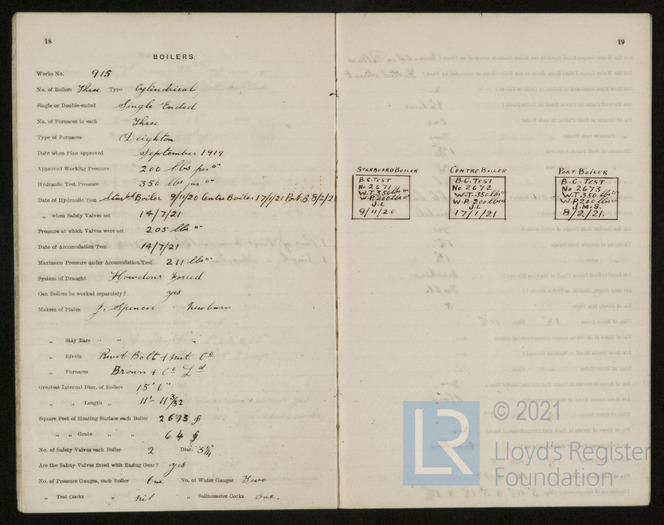 18
BOILERS.
Works No. 915
No. of Boilers Three Type Cylindrical
Single or Double-ended Single Ended
No. of Furnaces in each Three
Type of Furnaces Deighton
Date when Plan approved September 1919
Approved Working Pressure 200 lbs per □"
Hydraulic Test Pressure 350 lbs per □"
Date of Hydraulic Test Starbd Boiler 9/11/20 Center Boiler 17/1/21 Port B. 8/2/21
„ when Safety Valves set 14/7/21
Pressure at which Valves were set 205 lbs □"
Date of Accumulation Test 14/7/21
Maximum Pressure under Accumulation Test 211 lbs □"
System of Draught Howdens Forced
Can Boilers be worked separately? yes
Makers of Plates J. Spencer Newburn
„ Stay Bars „ „
„ Rivets Rivet Bolt & Nut Co.
„ Furnaces Brown & Co. Ld
Greatest Internal Diam. of Boilers 15' 6"
„ „ Length „ 11' 11 3/32
Square Feet of Heating Surface each Boiler 2673
„ „ Grate „ „ 64
No. of Safety Valves each Boiler 2 Diam. 3¼"
Are the Safety Valves fitted with Easing Gear? yes
No. of Pressure Gauges, each Boiler One No. of Water Gauges Two
„ Test Cocks „ Nil „ Salinometer Cocks One.
19
STARBOARD BOILER
B.C. TEST
No 2671
W.T. 350 lbs □"
W.P. 200 lbs □"
J.L
9/11/20
CENTRE BOILER
B.C. TEST
No 2672
W.T. 350 lbs □"
W.P. 200 lbs □"
J.L
17/1/21
PORT BOILER
B.C. TEST
No 2673
W.T. 350 lbs □"
W.P. 200 lbs □"
J.M.S.
8/2/21.
LR
© 2021
Lloyd's Register
Foundation